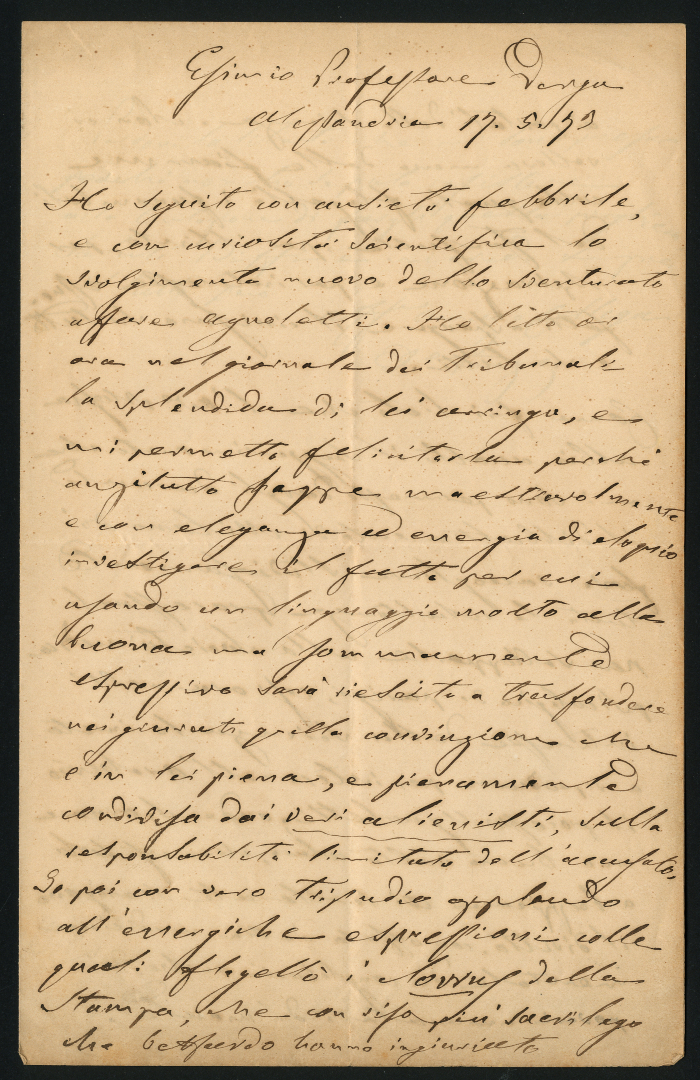 Esimio Professore Verga
Alessandria 17. 5. 73
Ho seguito con ansietà febbrile,
e con curiosità scientifica lo
svolgimento nuovo dello sventurato
affare Agnoletti. Ho letto or
ora nel giornale dei Tribunali
la splendida di lei arringa, e
mi permetto felicitarla perché
anzitutto seppe maestrevolmente
e con eleganza ed energia di eloquio
investigare il fatto per cui
usando un linguaggio molto alla
buona ma sommamente
espressivo sarà riescita a trasfondere
nei giurati quella convinzione che
è in lei piena, e pienamente
condivisa dai veri alienisti, sulla
responsabilità limitata dell'accusato.
Io poi con vero tripudio applaudo
all'energiche espressioni colle
quali flagellò i della
stampa, che con riso più sacrilego
che beffardo hanno ingiuriato